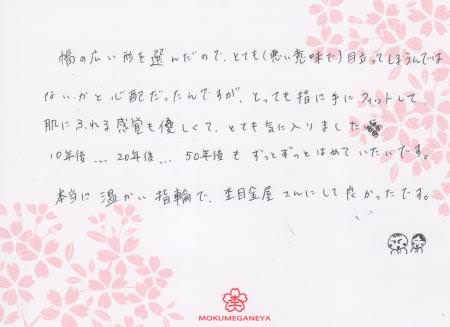 幅の広い形を選んだので、とても(悪い意味で)目立ってしまうんでは
ないかと心配だったんですが、とっても指に手にフィットして
肌にふれる感覚も優しくて、とても気に入りました
10年後… 20年後… 50年後もずっとずっとはめていたいです。
本当に温かい指輪で、杢目金屋さんにして良かったです。
杢
MOKUMEGANEYA